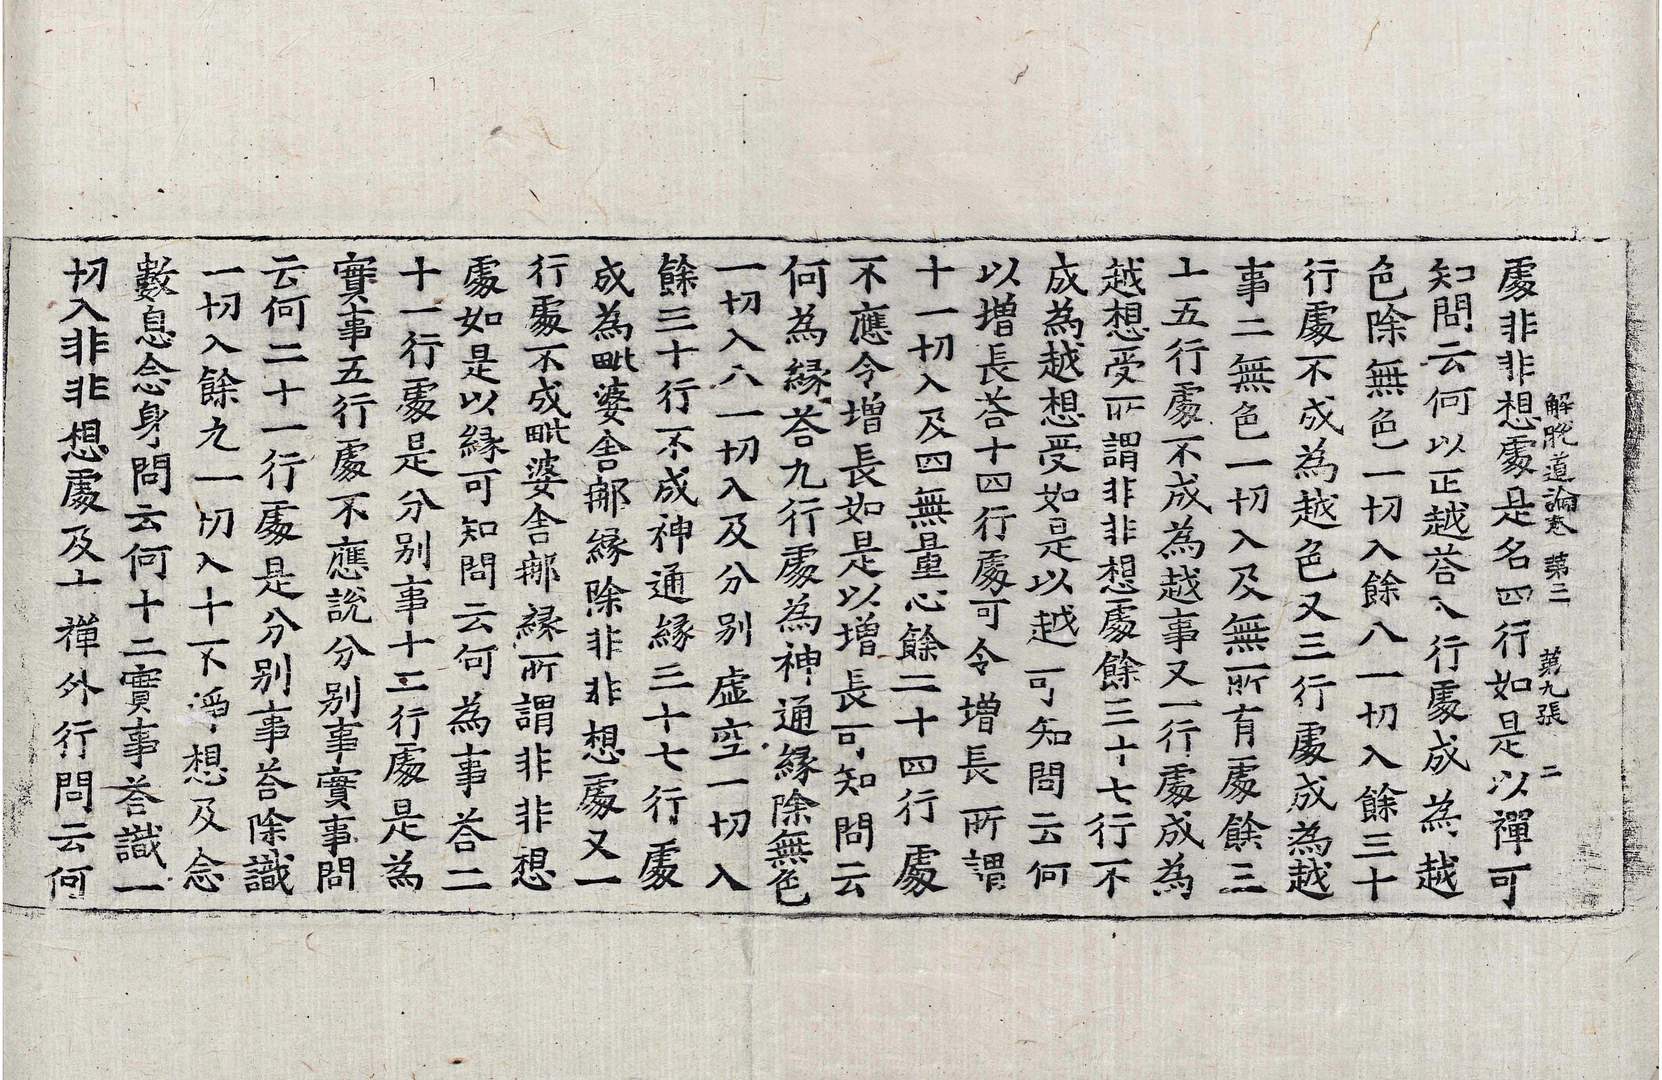 解脫道論卷第三 第九張 二
處非非想處是名四行如是以禪可
知問云何以正越荅入行處成為越
色除無色一切入餘八一切入餘三十
行處不成為越色又三行處成為越
事二無色一切入及無所有處餘三
十五行處不成為越事又一行處成為
越想受所謂非非想處餘三十七行不
成為越想受如是以越可知問云何
以增長荅十四行處可令增長所謂
十一切入及四無量心餘二十四行處
不應令增長如是以增長可知問云
何為緣荅九行處為神通緣除無色
一切入八一切入及分別虛空一切入
餘三十行不成神通緣三十七行處
成為毗婆舍那緣除非非想處又一
行處不成毗婆舍那緣所謂非非想
處如是以緣可知問云何為事荅二
十一行處是分別事十二行處是為
實事五行處不應說分別事實事問
云何二十一行處是分別事荅除識
一切入餘九一切入十不淨想及念
數息念身問云何十二實事荅識一
切入非非想處及十禪外行問云何